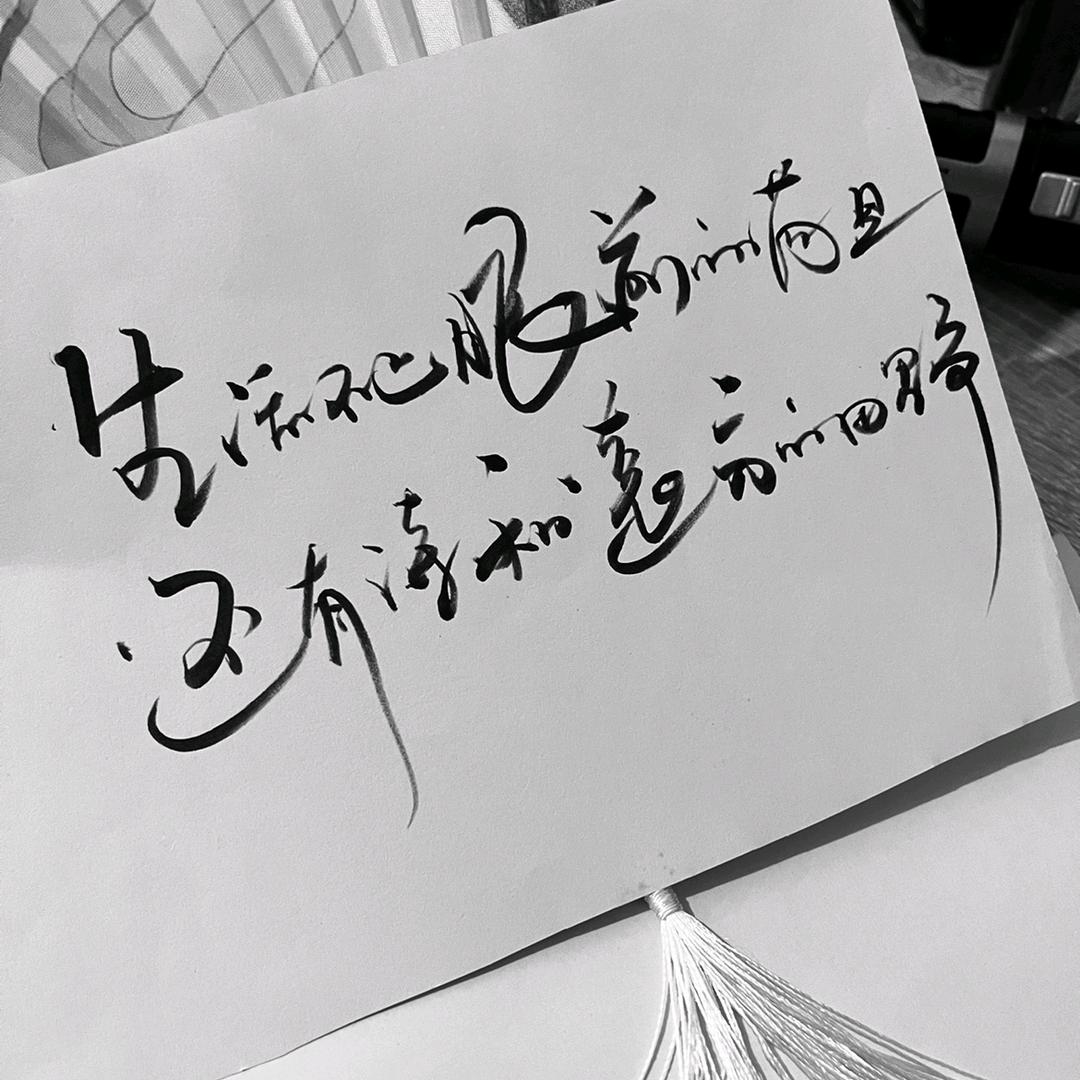 生活不止眼前的苟且
还有诗和遠方的田野